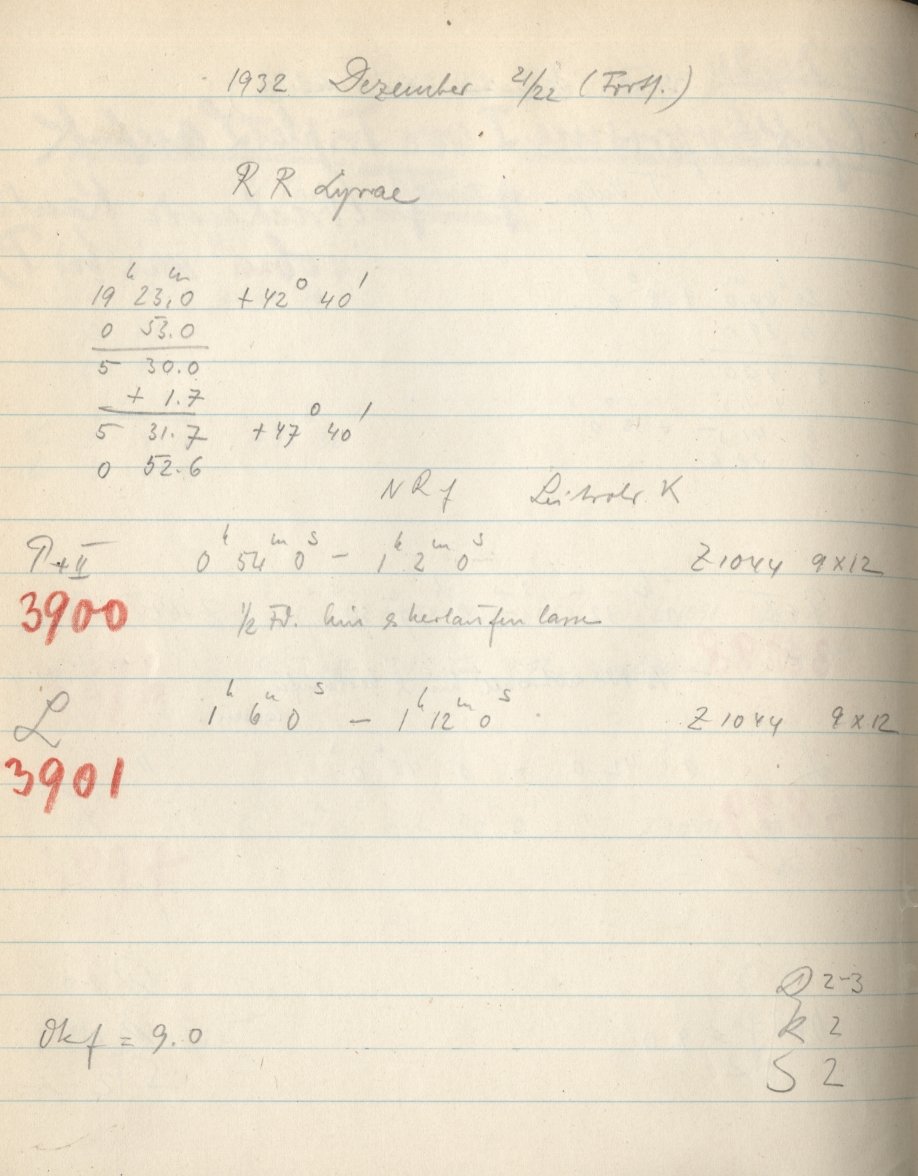 1932 Dezember 21/22 (Forts.)
R R Lyrae
19 h 23,0 m +42° 40'
0 53.0
5 30.0
+ 1.7
5 31.7 +47° 40'
0 52.6
N R f Leitrohr K
P+II 0h 54m 0s – 1h 2m 0s Z 1044 9x12
3900 1/2 Fd. hin & herlaufen lassen
L 1h 6m 0s – 1h 12m 0s Z 1044 9x12
3901
D 2-3
Okf = 9.0 R 2
S 2